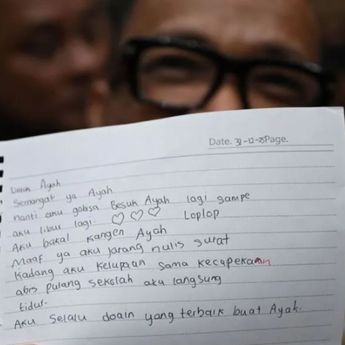 Date. 31-12-25 Page.
Untuk Ayah
Semangat ya Ayah
nanti aku gabisa Besuk Ayah lagi sampe
aku libur lagi. ♡ ♡ ♡ Loplop
Aku bakal kangen Ayah
Maaf ya aku jarang nulis surat
Kadang aku kelupaan sama kecapekaan
abis pulang sekolah aku langsung
tidur.
Aku selalu doain yang terbaik buat Ayah.